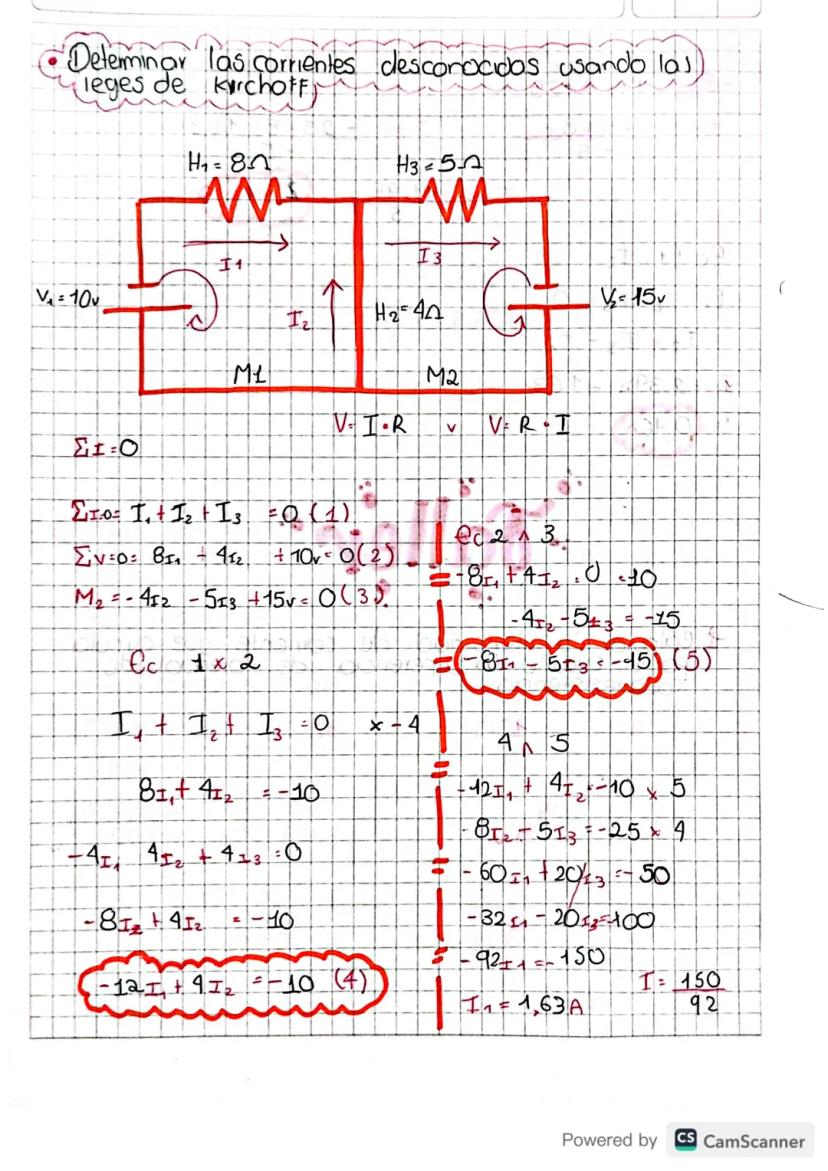 • Deteminar las corrientes desconocidos usando las
leyes de Kirchoff
H₁ = 8Ω
H₃ = 5Ω
I₁
I₃
V₁ = 10v
I₂
H₂ = 4Ω
V₂ = 15v
M1
M2
V = I • R v V = R • I
ΣI = 0
ΣI=0= I₁ + I₂ + I₃ = 0 (1)
ΣV=0= 8I₁ + 4I₂ + 10v = 0 (2)
M₂ = - 4I₂ - 5I₃ + 15v = 0 (3)
Ec 1 x 2
I₁ + I₂ + I₃ = 0 x - 4
8I₁ + 4I₂ = -10
-4I₁ 4I₂ + 4I₃ = 0
-8I₂ + 4I₂ = -10
-12I₁ + 4I₂ = -10 (4)
Ec 2 ∧ 3
-8I₁ + 4I₂ = 0 = 10
-4I₂ - 5I₃ = -15
-8I₁ - 5I₃ = -15 (5)
4 ∧ 5
-12I₁ + 4I₂ = -10 x 5
-8I₂ - 5I₃ = -25 x 4
-60I₁ + 20I₃ = -50
-32I₁ - 20I₃ = 100
-92I₁ = -150
I₁ = 1,63A
I = 150
92
Powered by CS CamScanner